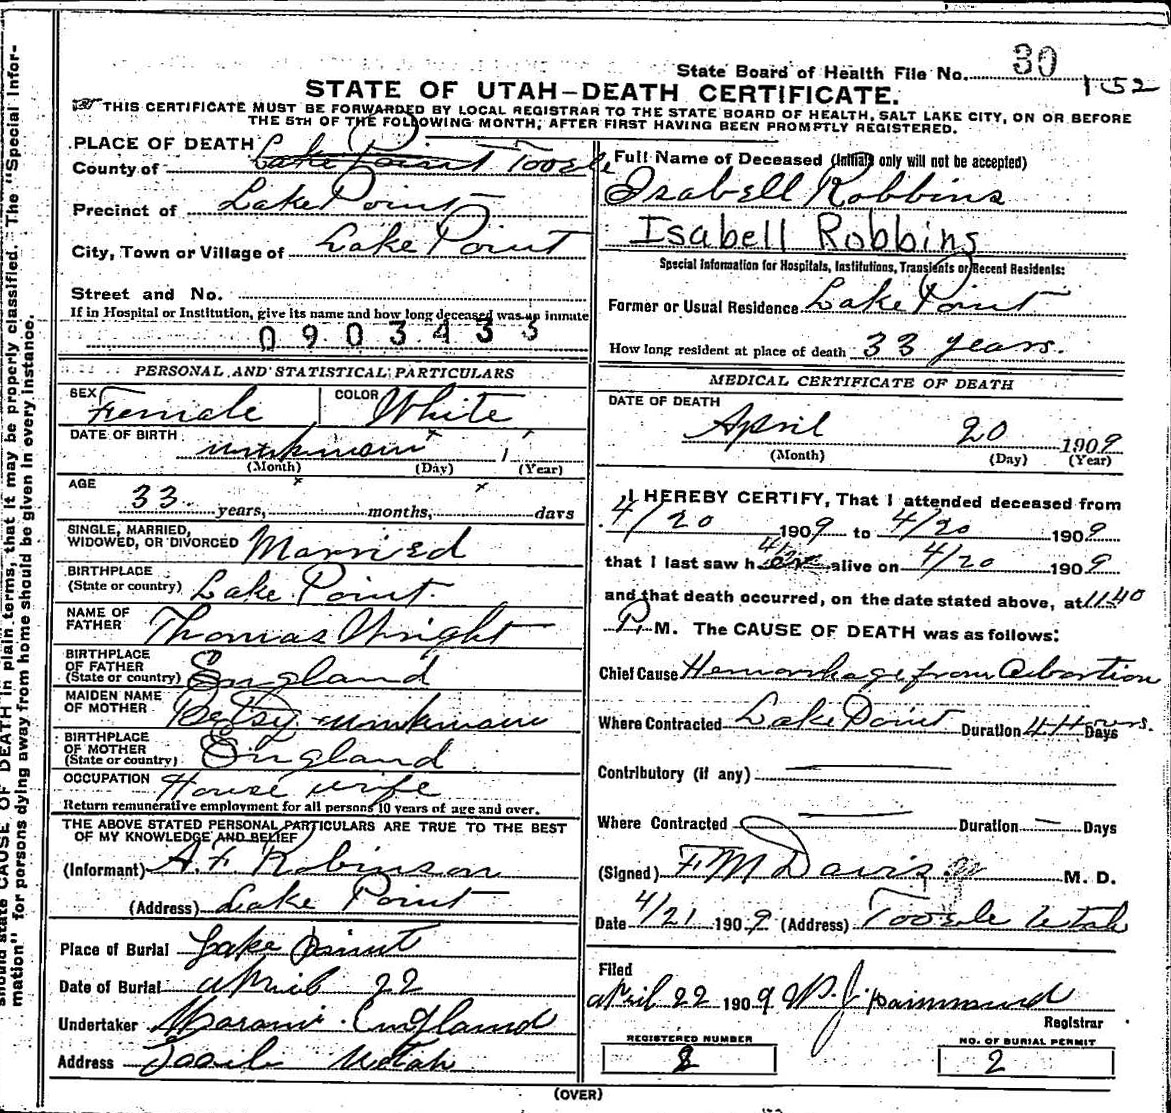 State Board of Health File No. 30
1 52
STATE OF UTAH—DEATH CERTIFICATE.
THIS CERTIFICATE MUST BE FORWARDED BY LOCAL REGISTRAR TO THE STATE BOARD OF HEALTH, SALT LAKE CITY, ON OR BEFORE
THE 5TH OF THE FOLLOWING MONTH, AFTER FIRST HAVING BEEN PROMPTLY REGISTERED.
PLACE OF DEATH
County of Lake Point Tooele
Precinct of Lake Point
City, Town or Village of Lake Point
Street and No.
If in Hospital or Institution, give its name and how long deceased was an inmate
0903433
PERSONAL AND STATISTICAL PARTICULARS
SEX Female COLOR White
DATE OF BIRTH unknown
(Month) (Day) (Year)
AGE
33 years, months, days
SINGLE, MARRIED,
WIDOWED, OR DIVORCED Married
BIRTHPLACE
(State or country) Lake Point
NAME OF
FATHER Thomas Wright
BIRTHPLACE
OF FATHER
(State or country) England
MAIDEN NAME
OF MOTHER Betsy unknown
BIRTHPLACE
OF MOTHER
(State or country) England
OCCUPATION House wife
Return remunerative employment for all persons 10 years of age and over.
THE ABOVE STATED PERSONAL PARTICULARS ARE TRUE TO THE BEST
OF MY KNOWLEDGE AND BELIEF
(Informant) A. F. Robinson
(Address) Lake Point
Place of Burial Lake Point
Date of Burial april 22
Undertaker England
Address Tooele Utah
Full Name of Deceased (Initials only will not be accepted)
Isabell Robbins
Isabell Robbins
Special Information for Hospitals, Institutions, Transients or Recent Residents:
Former or Usual Residence Lake Point
How long resident at place of death 33 years.
MEDICAL CERTIFICATE OF DEATH
DATE OF DEATH
April 20 1909
(Month) (Day) (Year)
I HEREBY CERTIFY, That I attended deceased from
4/20 1909 to 4/20 1909
that I last saw h alive on 4/20 1909
and that death occurred, on the date stated above, at 11.40
P. M. The CAUSE OF DEATH was as follows:
Chief Cause Hemorrhage from Abortion
Where Contracted Lake Point Duration 4 Hours. Days
Contributory (if any)
Where Contracted Duration — Days
(Signed) F M Davis M. D.
Date 4/21 1909 (Address) Tooele Utah
Filed
april 22 1909
Registrar
REGISTERED NUMBER
2
NO. OF BURIAL PERMIT
2
(OVER)
should state CAUSE OF DEATH in plain terms, that it may be properly classified. The "Special Infor-
mation" for persons dying away from home should be given in every instance.